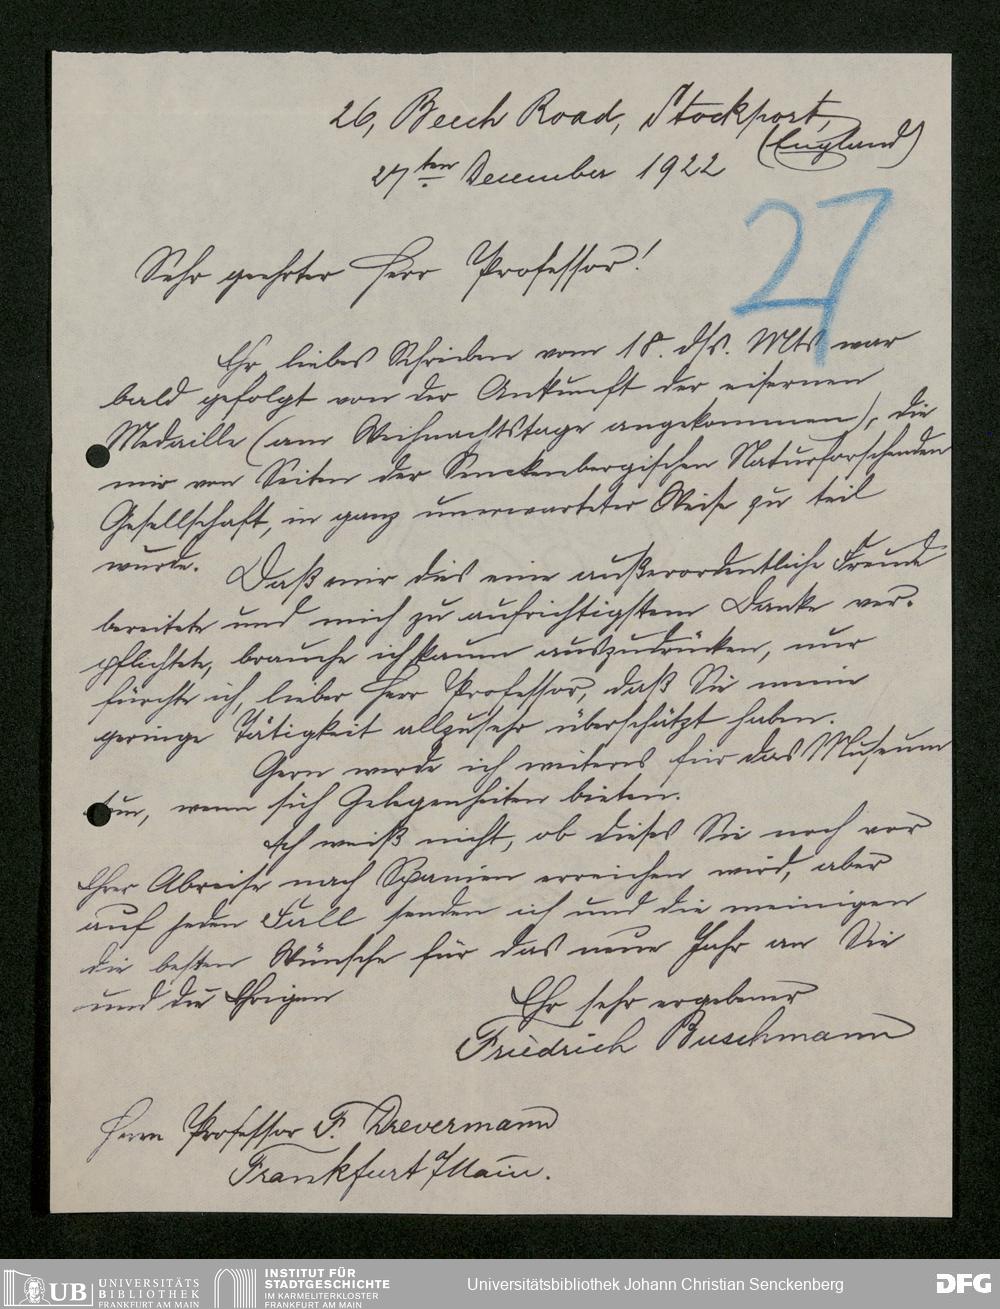 26, Beech Road, Stockport,
(England)
27ten December 1922
27
Sehr geehrter Herr Professor!
Ihr liebes Schreiben vom 18. ds. Mts war
bald gefolgt von der Ankunft der eisernen
Medaille (am Weihnachtstage angekommen), die
mir von Seiten der Senckenbergischen Naturforschenden
Gesellschaft, in ganz unerwarteter Weise zu teil
wurde. Daß mir dies eine außerordentliche Freude
bereitete und mich zu aufrichtigstem Danke ver-
pflichtete, brauche ich kaum auszudrücken, nur
fürchte ich, lieber Herr Professor, daß Sie meine
geringe Tätigkeit allzusehr überschätzt haben.
Gern werde ich weiteres für das Museum
tun, wenn sich Gelegenheiten bieten.
Ich weiß nicht, ob dieses Sie noch vor
Ihrer Abreise nach Spanien erreichen wird, aber
auf jeden Fall senden ich und die meinigen
die besten Wünsche für das neue Jahr an Sie
und die Ihrigen
Ihr sehr ergebener
Friedrich Buschmann
Herrn Professor F. Drevermann
Frankfurt /Main.
UB UNIVERSITÄTS
BIBLIOTHEK
FRANKFURT AM MAIN
INSTITUT FÜR
STADTGESCHICHTE
IM KARMELITERKLOSTER
FRANKFURT AM MAIN
Universitätsbibliothek Johann Christian Senckenberg
DFG